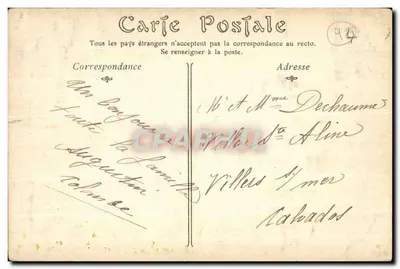 Carte Postale
94
Tous les pays étrangers n'acceptent pas la correspondance au recto.
Se renseigner à la poste.
Correspondance
Adresse
Un bonjour
toute la famille
Augustin
M et Mme Dechaume
Villa Ste Aline
Villers s/mer
Calvados
CPARAMA